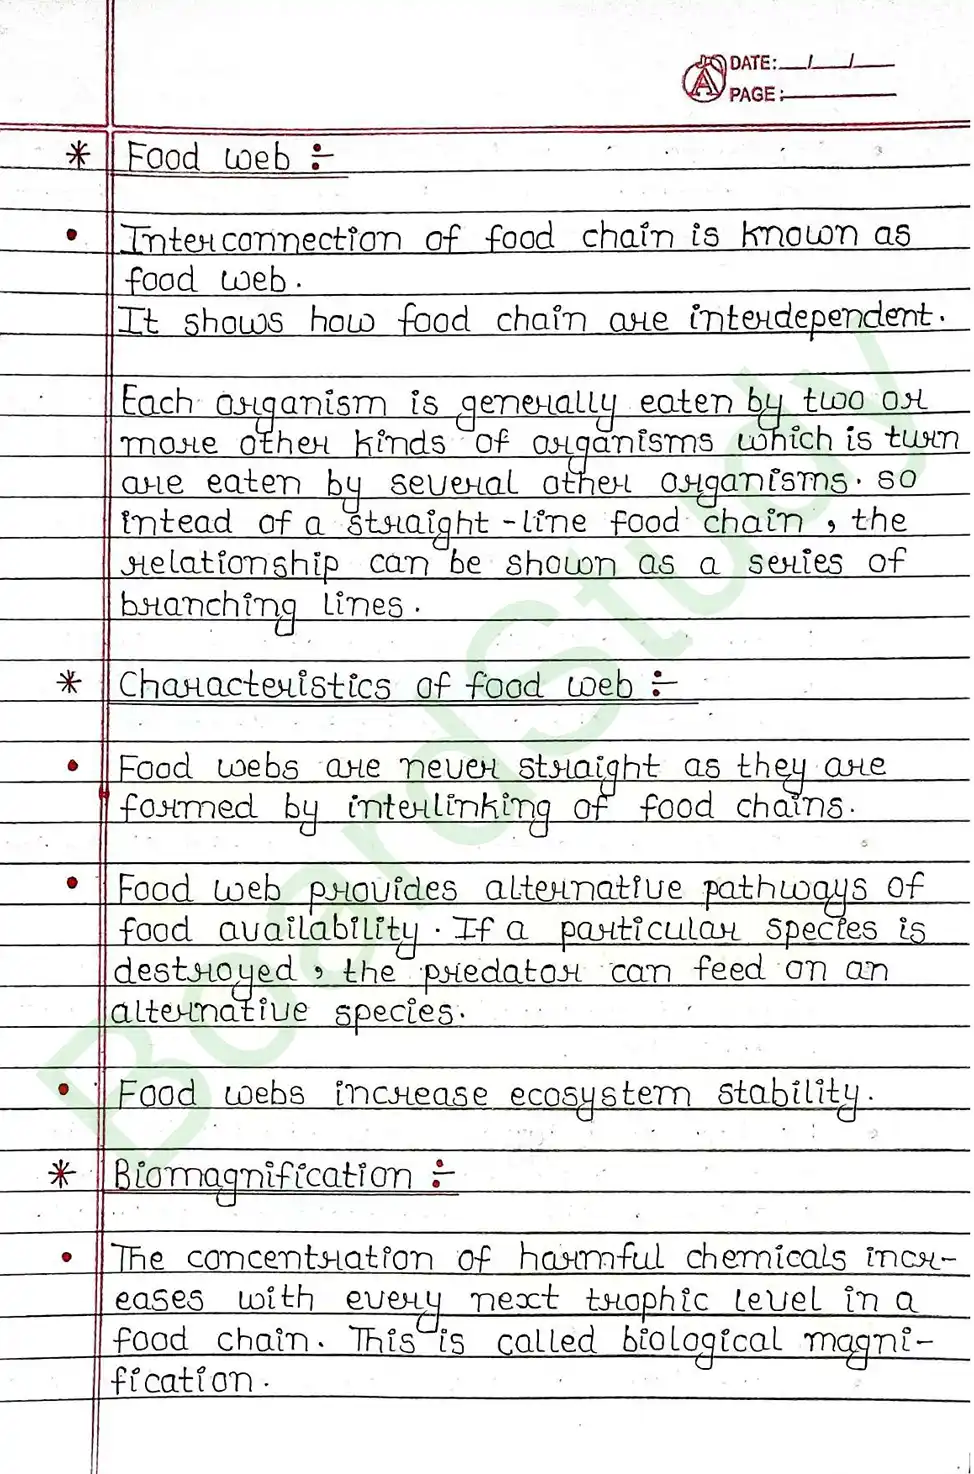 DATE: __/__/__
PAGE: ______
* Food web :-
• Interconnection of food chain is known as
food web.
It shows how food chain are interdependent.
Each organism is generally eaten by two or
more other kinds of organisms which is turn
are eaten by several other organisms. so
intead of a straight-line food chain, the
relationship can be shown as a series of
branching lines.
* Characteristics of food web :-
• Food webs are never straight as they are
formed by interlinking of food chains.
• Food web provides alternative pathways of
food availability. If a particular species is
destroyed, the predator can feed on an
alternative species.
• Food webs increase ecosystem stability.
* Biomagnification :-
• The concentration of harmful chemicals incr-
eases with every next trophic level in a
food chain. This is called biological magni-
fication.
BoardStudy